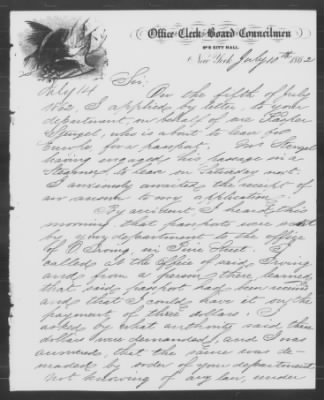 Office Clerk Board Councilmen
No 5 City Hall
New York July 10th 1862
July 14
Sir:
On the fifth of July
1862, I applied by letter to your
department, on behalf of one
Stengel, who is about to leave for
Europe, for a passport. Mr Stengel
having engaged his passage in a
Steamer to leave on Saturday next.
I anxiously awaited the receipt of
an answer to my application.
By accident, I heard this
morning that passports were sent
by your department to the office
of Irving in Pine Street. I
called at the office of said Irving
and from a person there learned
that said passport had been received
and that I could have it on the
payment of three dollars. I
asked by what authority said three
dollars were demanded, and I was
answered, that the same was de-
manded by order of your department
not knowing of any law, under